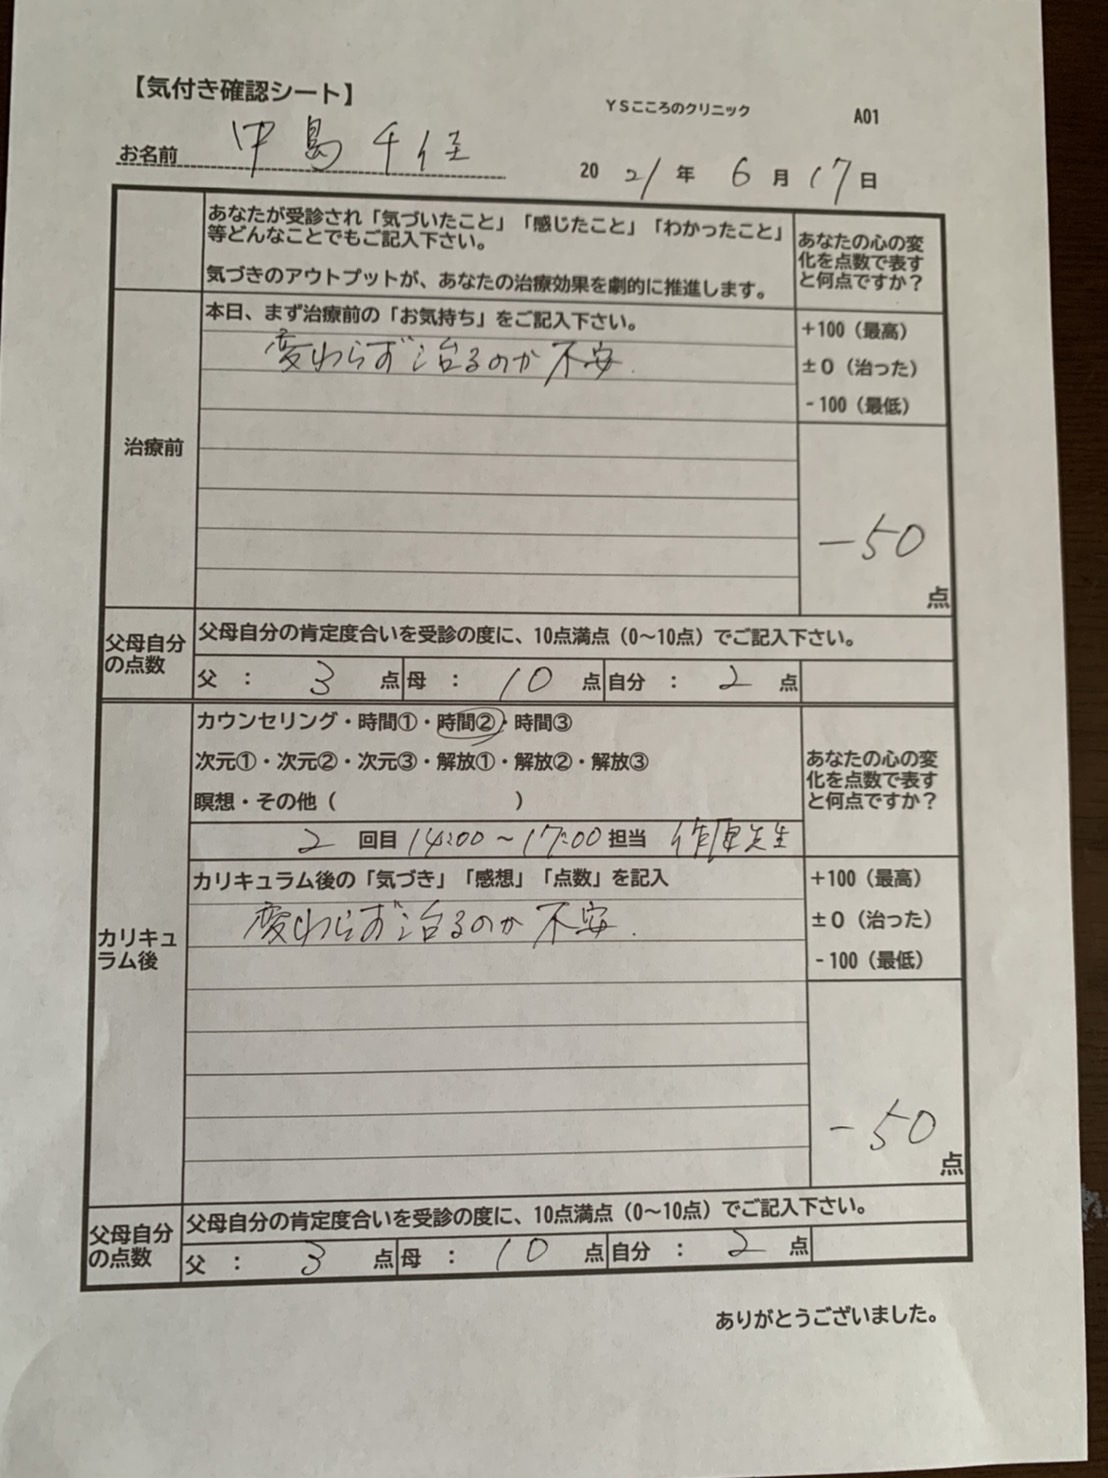 【気付き確認シート】
YSこころのクリニック
A01
お名前 中島千佳
2021年6月17日
あなたが受診され「気づいたこと」「感じたこと」「わかったこと」
等どんなことでもご記入下さい。
気づきのアウトプットが、あなたの治療効果を劇的に推進します。
あなたの心の変
化を点数で表す
と何点ですか？
治療前
本日、まず治療前の「お気持ち」をご記入下さい。
変わらず治るのか不安.
+100（最高）
±0（治った）
-100（最低）
-50
点
父母自分
の点数
父母自分の肯定度合いを受診の度に、10点満点（0〜10点）でご記入下さい。
父 ： 3 点 母 ： 10 点 自分 ： 2 点
カウンセリング・時間①・時間②・時間③
次元①・次元②・次元③・解放①・解放②・解放③
瞑想・その他（ ）
2 回目 14:00〜17:00 担当 作原先生
あなたの心の変
化を点数で表す
と何点ですか？
カリキュ
ラム後
カリキュラム後の「気づき」「感想」「点数」を記入
変わらず治るのか不安.
+100（最高）
±0（治った）
-100（最低）
-50
点
父母自分
の点数
父母自分の肯定度合いを受診の度に、10点満点（0〜10点）でご記入下さい。
父 ： 3 点 母 ： 10 点 自分 ： 2 点
ありがとうございました。